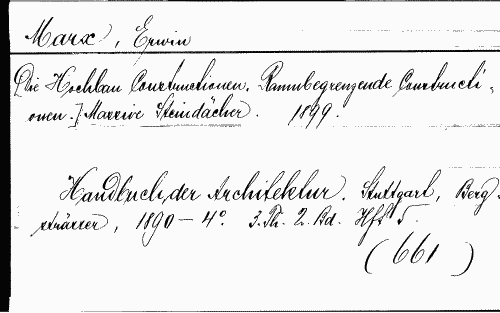 Marx, Erwin
[Die Hochbau Constructionen. Raumbegrenzende Constructi-
onen.] Massive Steindächer. 1899.
Handbuch der Architektur. Stuttgart, Berg-
strässer, 1890 - 4°. 3. Th. 2. Bd. Hft 5.
(661)